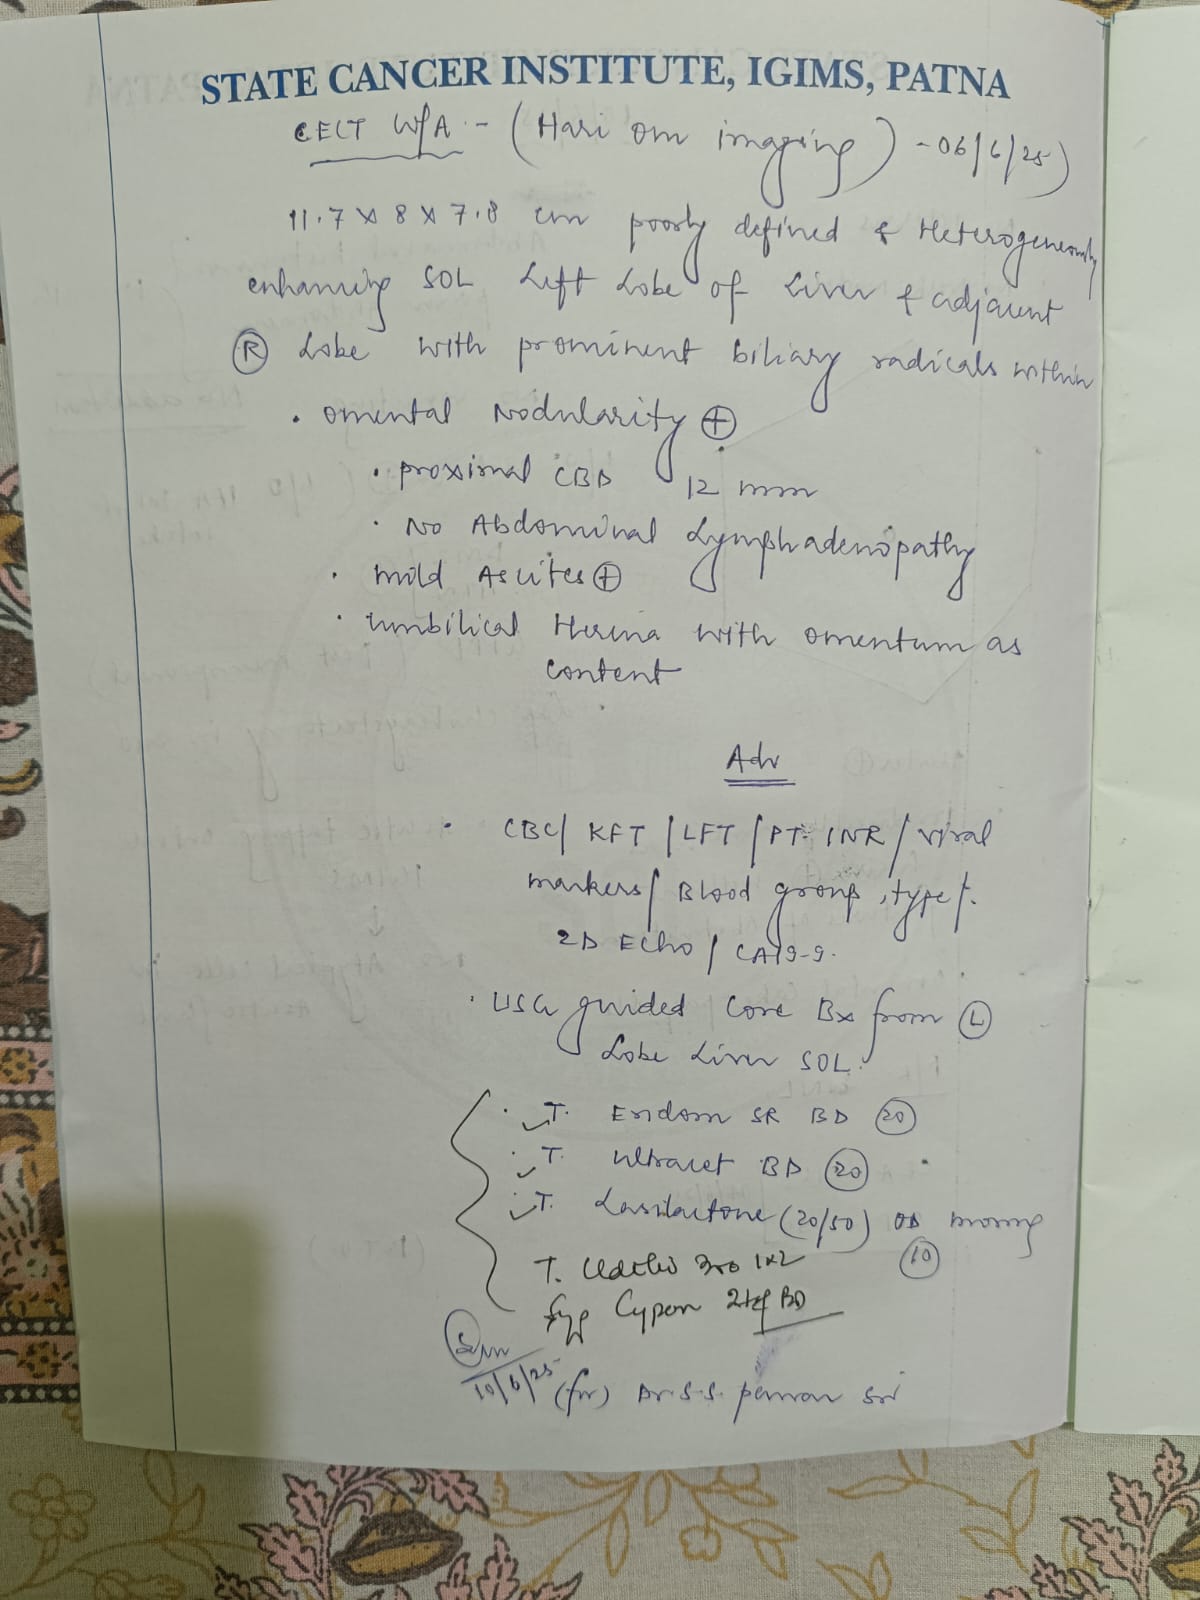 STATE CANCER INSTITUTE, IGIMS, PATNA
CECT W/A :- (Hari om imaging) - 06/6/25)
11.7 x 8 x 7.8 cm poorly defined & Heterogeneously
enhancing SOL Left Lobe of Liver & adjacent
(R) Lobe with prominent biliary radicals within
• omental Nodularity (+)
• proximal CBD 12 mm
• No Abdominal Lymphadenopathy
• mild Ascites (+)
• umbilical Hernia with omentum as
content
Adv
• CBC/ KFT / LFT / PT-INR / viral
markers/ Blood group, type /.
2D Echo / CA19-9.
• USG guided Core Bx from (L)
Lobe Liver SOL.
T. SR BD (20)
T. Ultracet BD (20)
T. Lasilactone (20/50) OD
(10)
T. 300 1x2
Syp Cypon 2tsf BD
10/6/25 (for) Dr. S.S.